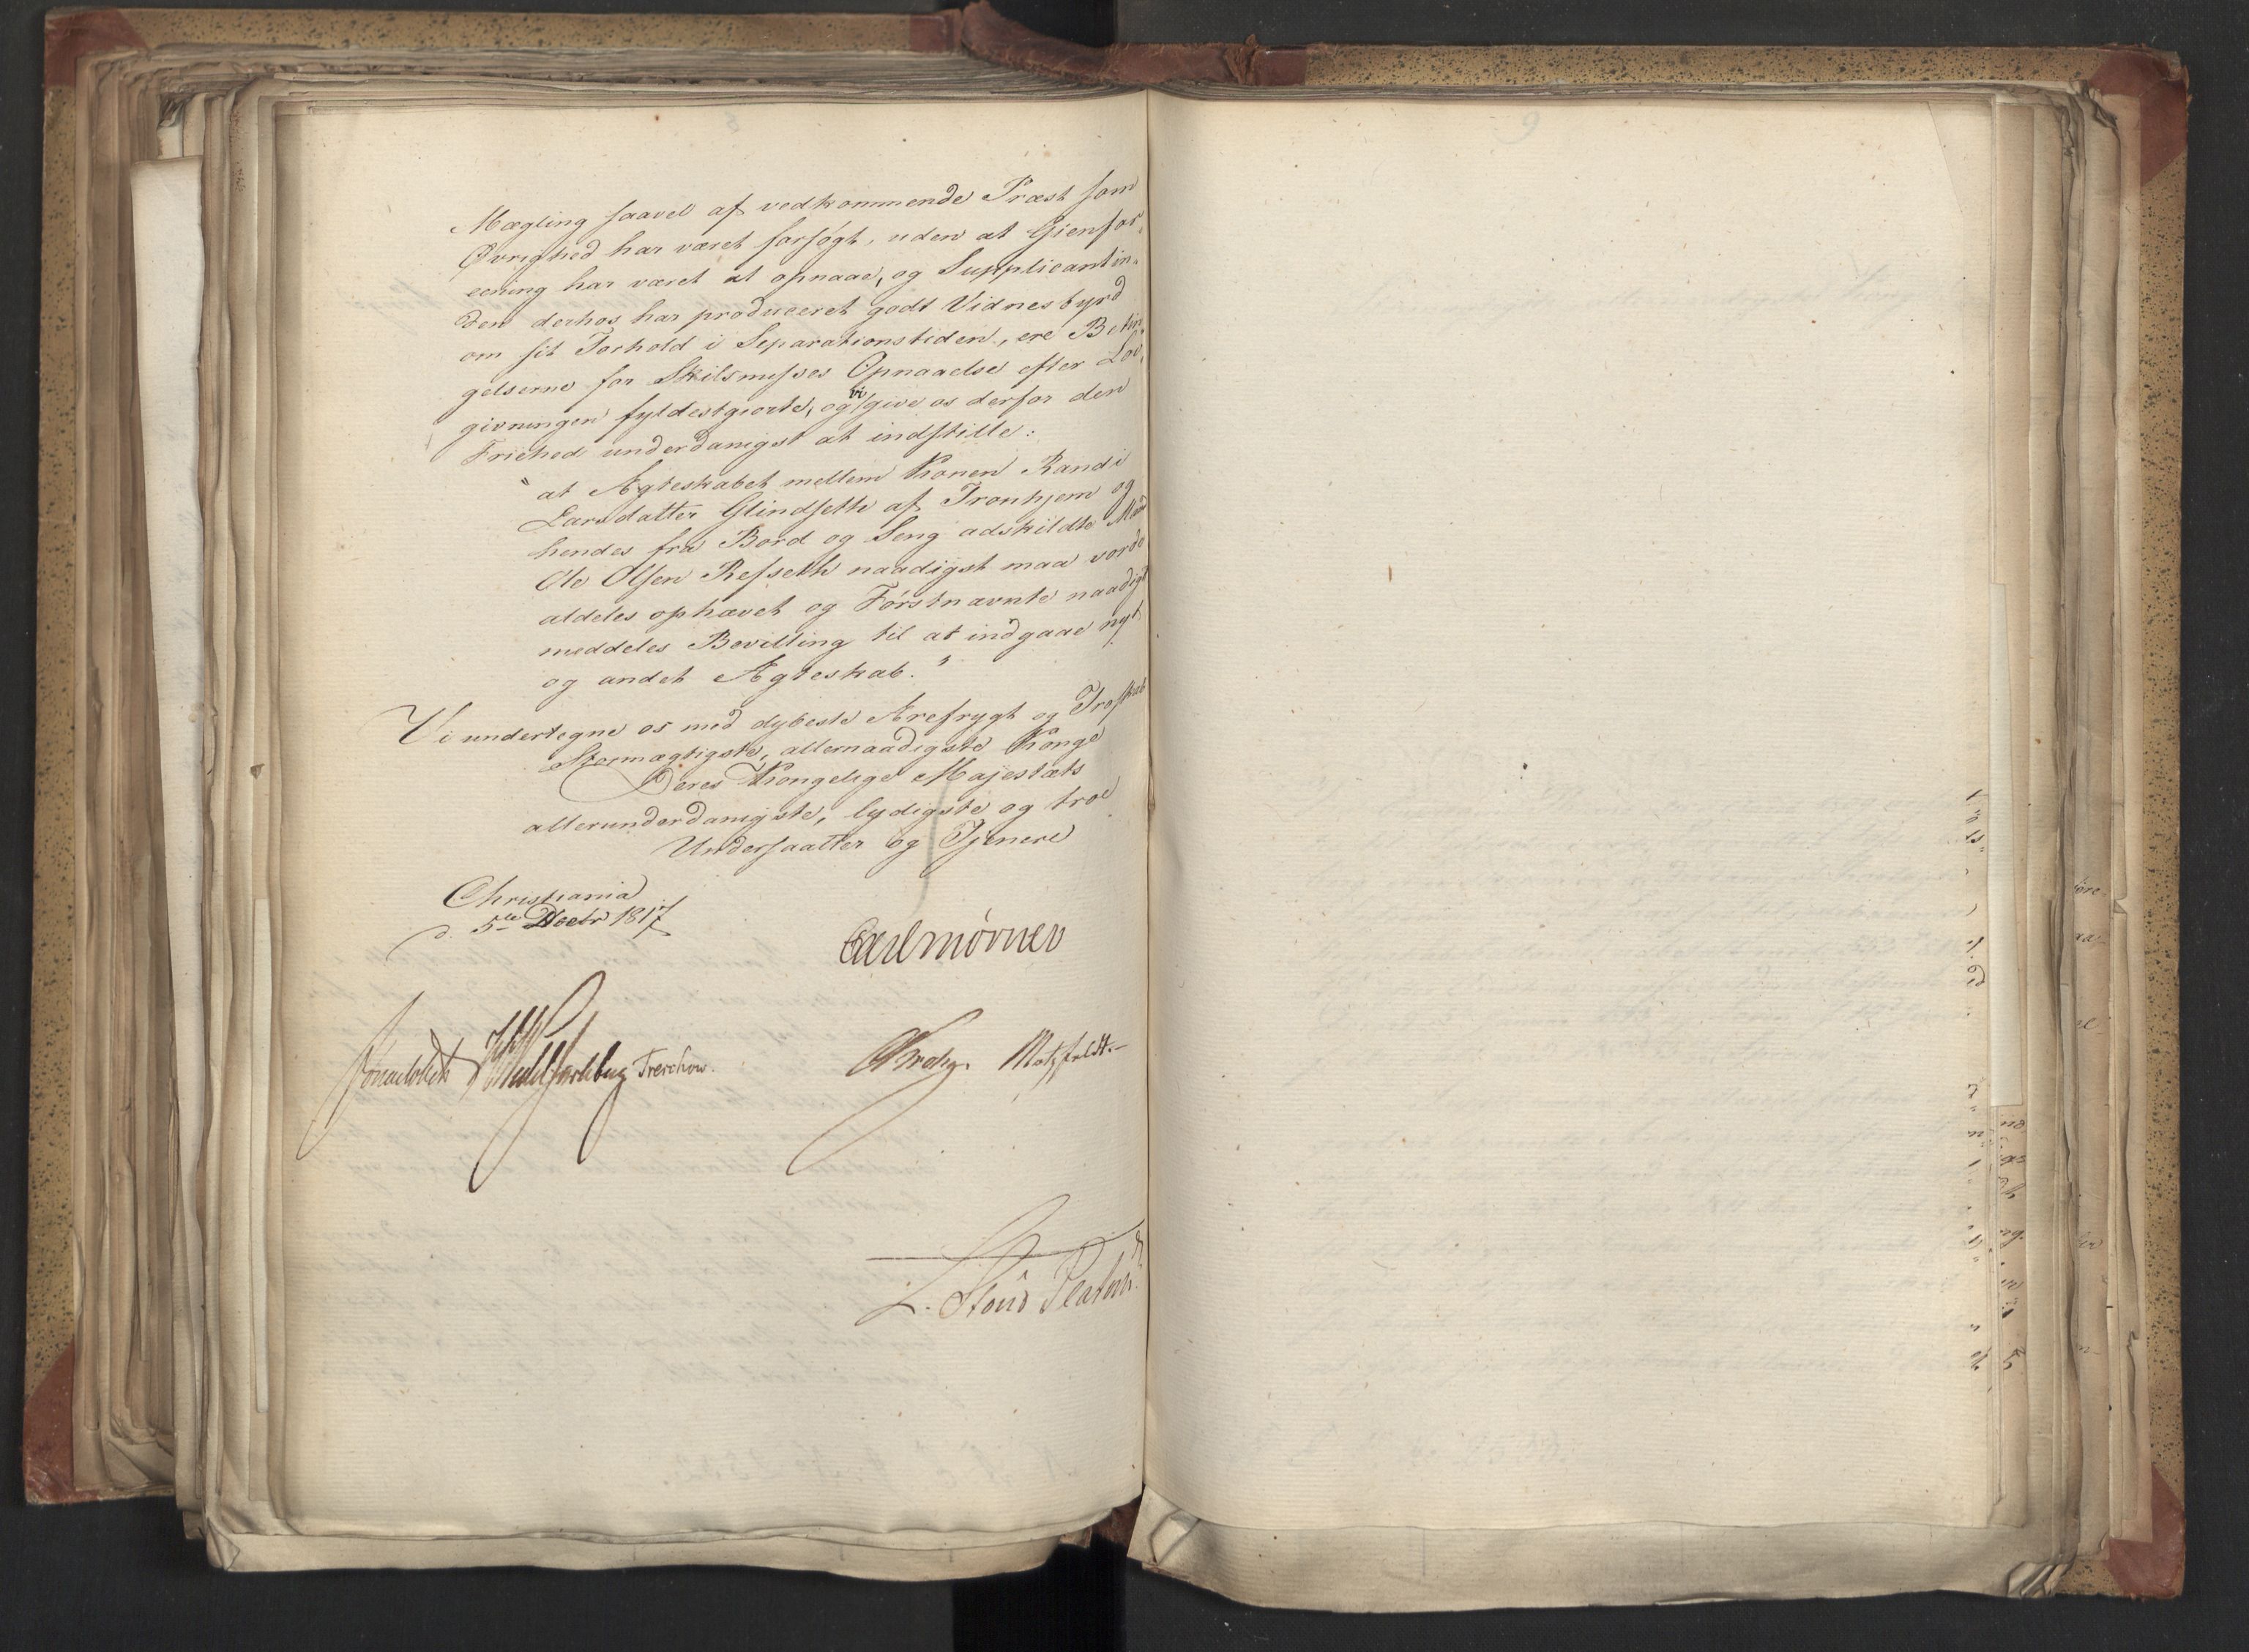 Mægling saavel af vedkommende Præst som
Øvrighed har været forsøgt, uden at Gienfor-
eening har været at opnaae, og Supplicantin-
den derhos har produceret godt Vidnesbyrd
om sit Forhold i Separationstiden, ere Betin-
gelserne for Skilsmisses Opnaaelse efter Lov-
givningen fyldestgiorte, og vi give os derfor den
Friehed underdanigst at indstille:
"at Ægteskabet mellem Konen Randi
Larsdatter Glindseth af Tronhjem og
hendes fra Bord og Seng adskildte Mand
Ole Olsen Refseth naadigst maa vorde
aldeles ophævet og Førstnævnte naadigst
meddeles Bevilling til at indgaae nyt
og andet Ægteskab."
Vi undertegne os med dybeste Ærefrygt og Troskab
Stormægtigste, allernaadigste Konge
Deres Kongelige Majestæts
allerunderdanigste, lydigste og troe
Undersaatter og Tjenere
Christiania
d. 5te Decbr 1817
Carl Mörner
Sommerhielm Treschow. Krohg. Motzfeldt.
L. Stoud Platou